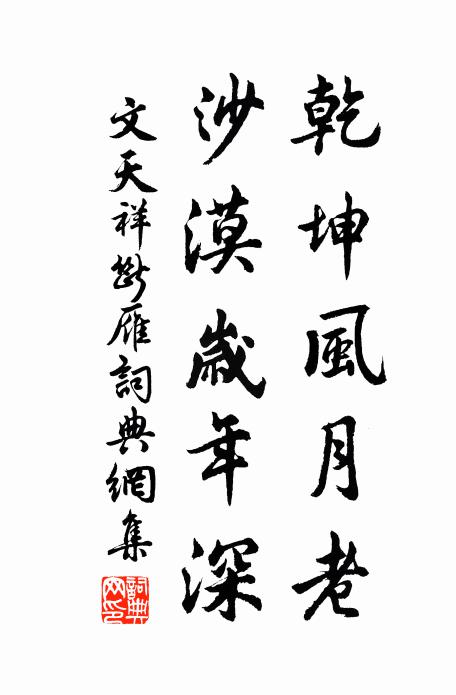 乾坤風月老
沙漠歲年深
文天祥斷雁詞典網集
詞典